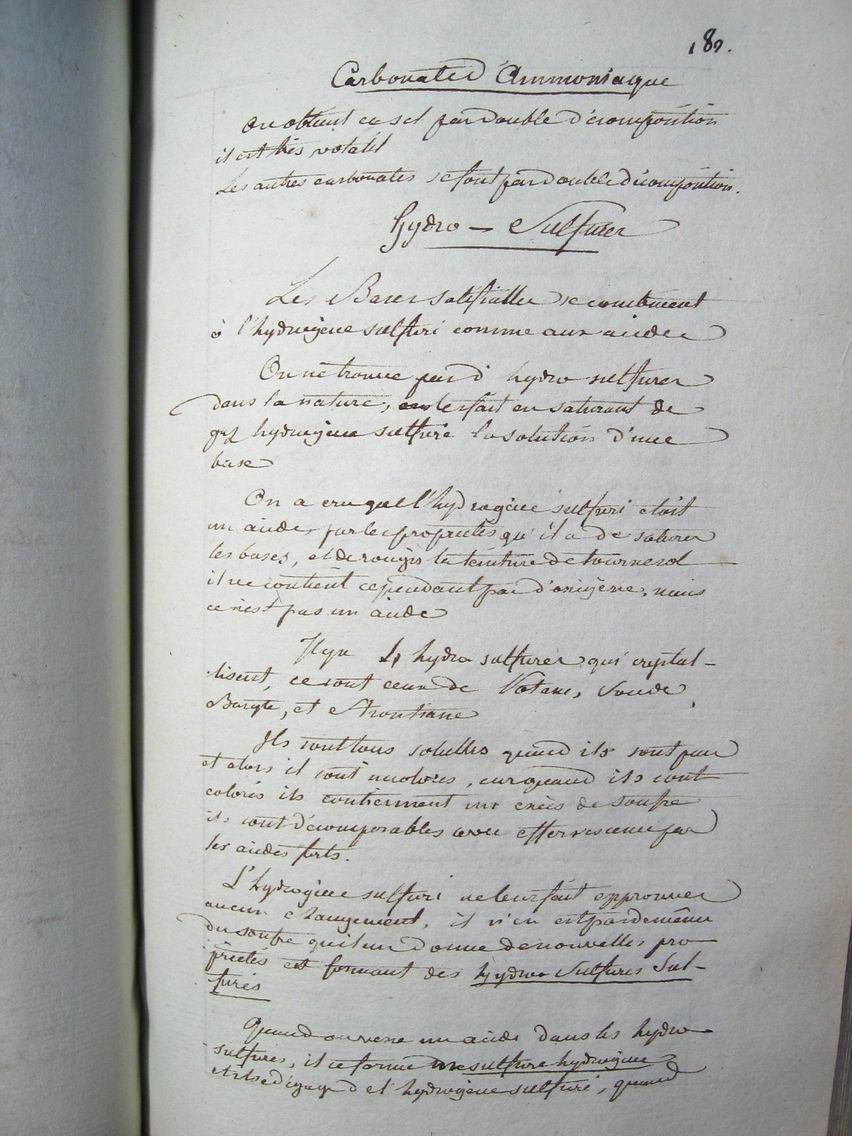 189.
Carbonate d'Ammoniaque
On obtient ce sel par double décomposition
il est très volatil
Les autres carbonates se font par double décomposition.
Hydro - Sulfures
Les Bases salifiables se combinent
à l'hydrogène sulfuré comme aux acides
On ne trouve pas d'hydro sulfures
dans la nature, on les fait en saturant de
gaz hydrogène sulfuré la solution d'une
base
On a cru que l'hydrogène sulfuré était
un acide, par les propriétés qu'il a de saturer
les bases, et de rougir la teinture de tournesol
il ne contient cependant pas d'oxigène, mais
ce n'est pas un acide
Il y a 4 hydro sulfures qui crystal-
lisent, ce sont ceux de Potasse, Soude,
Baryte, et Strontiane
Ils sont tous solubles quand ils sont purs
et alors il sont incolores, car quand ils sont
colorés ils contiennent un excès de soufre
ils sont décomposables avec effervescence par
les acides forts.
L'hydrogène sulfuré ne leur fait epprouver
aucun changement, il n'en est pas de même
du soufre qui leur donne de nouvelles pro-
priétés en formant des hydro Sulfures Sul-
furés
Quand on verse un acide dans les hydro
sulfures, il se forme un sulfure hydrogène
et il se dégage de l'hydrogène sulfuré, quand